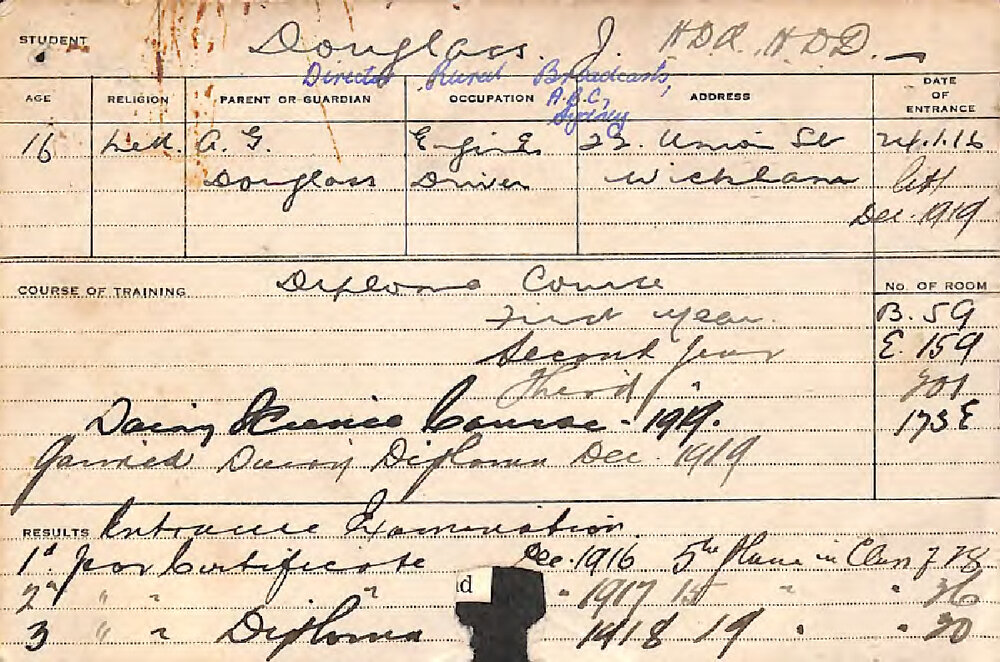 STUDENT Douglass. J. H.D.A. H.D.D.
Director Rural Broadcasts,
A.B.C,
Sydney
AGE RELIGION PARENT OR GUARDIAN OCCUPATION ADDRESS DATE OF ENTRANCE
16 A. G. Engine 22. Union St 24.1.16
Douglass Driver Wickham left
Dec. 1919
COURSE OF TRAINING Diploma Course No. OF ROOM
First year. B. 59
Second year E. 159
Third " 201
Dairy Science Course - 1919. 173 E
Gained Dairy Diploma Dec. 1919
RESULTS Entrance Examination.
1st year Certificate Dec. 1916 5th Place in Class of 28
2nd " " " " 1917 15 " " 36
id
3 " " Diploma 1918 19 " " 20